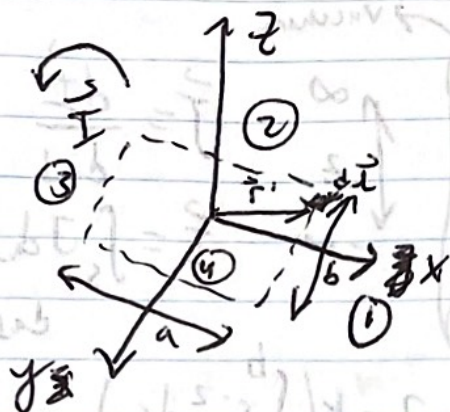 Z
I
②
③
r'
dl
④
b
x
①
a
y